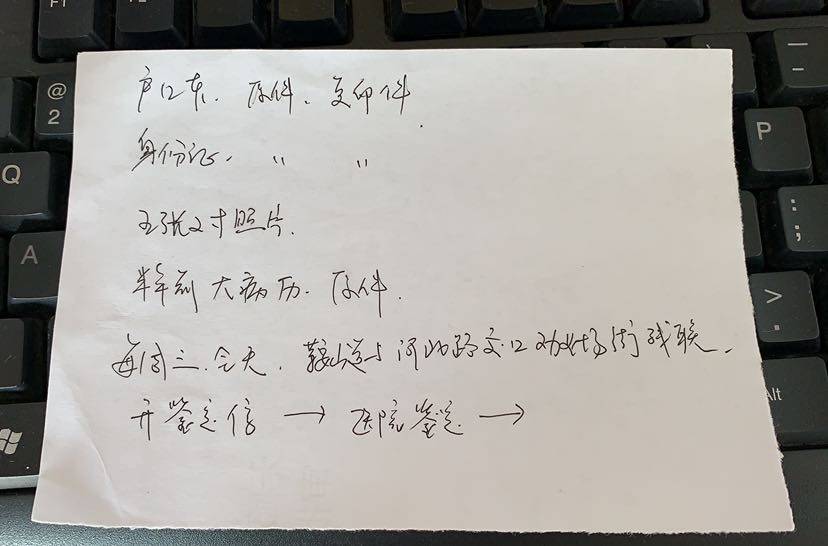 户口本、原件、复印件.
身份证、 〃 〃
五张2寸照片.
半年前大病历、原件.
每周三.全天,鞍山道与河北路交口劝业场街残联.
开鉴定信 → 医院鉴定 →
F1
F2
@
2
Q
A
P
:
;
>
.
Alt